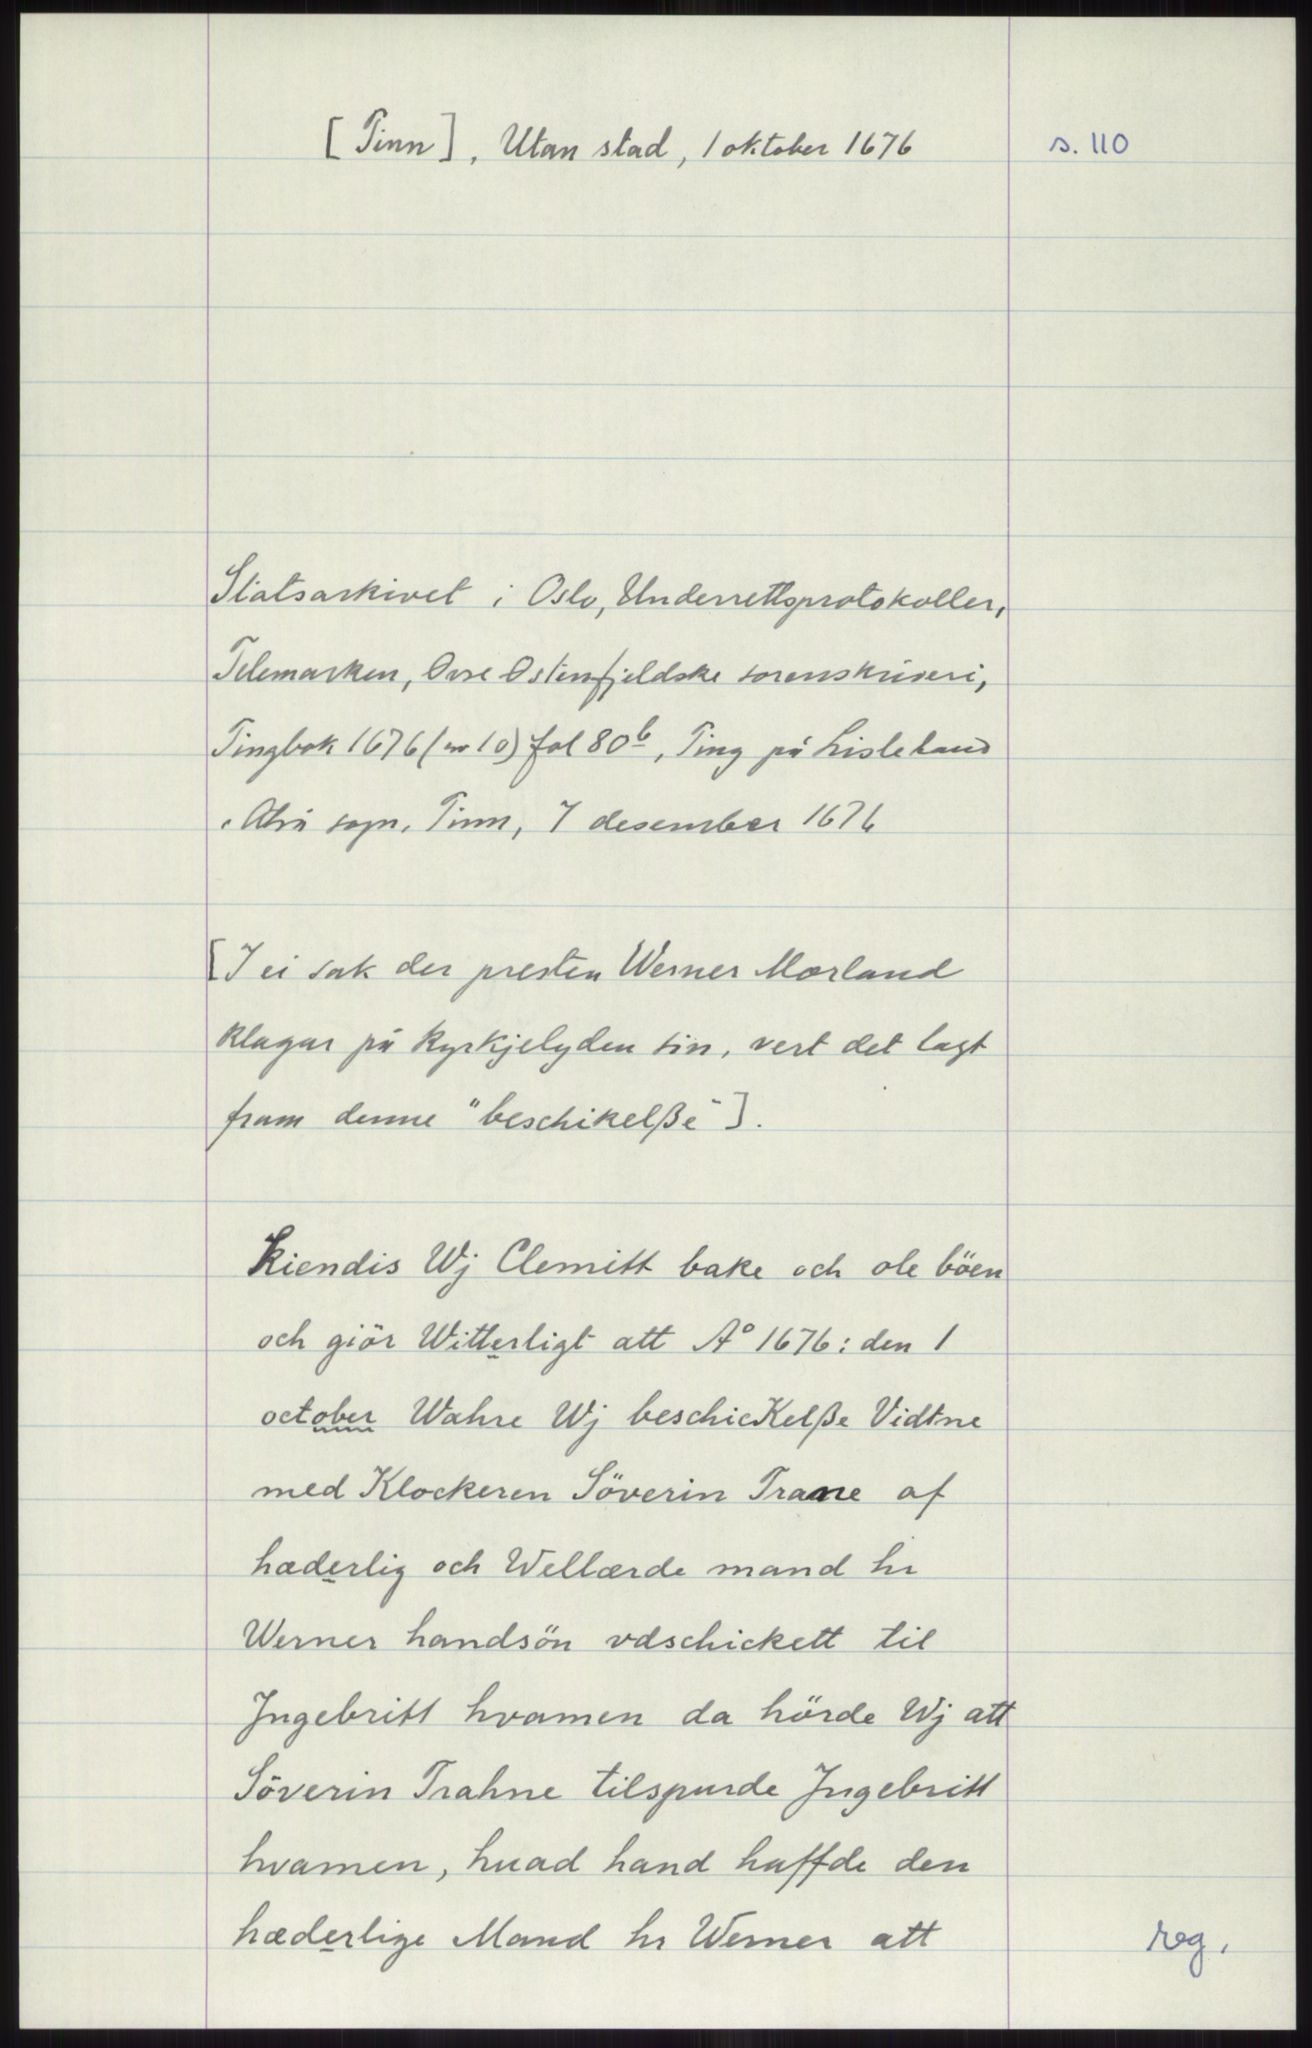 [Tinn], Utan stad, 1 oktober 1676
s. 110
Statsarkivet i Oslo, Underrettsprotokoller,
Telemarken, Øvre Østenfjeldske sorenskriveri,
Tingbok 1676 (nr 10) fol 80b, Ting på Lisleland
i Atrå sogn, Tinn, 7 desember 1676
[I ei sak der presten Werner Morland
klagar på kyrkjelyden sin, vert det lagt
fram denne "beschikelße"].
Kiendis Wj Clemitt bake och ole böen
och giör Witterligt att A° 1676: den 1
october Wahre Wj beschicKelße Vidtne
med Klockeren Söverin Trane af
hæderlig och Wellærde mand hr
Werner handsön vdschickett til
Jngebritt hvamen da hörde Wj att
Söverin Trahne tilspurde Jngebritt
hvamen, huad hand haffde den
hæderlige Mand hr Werner att
reg.